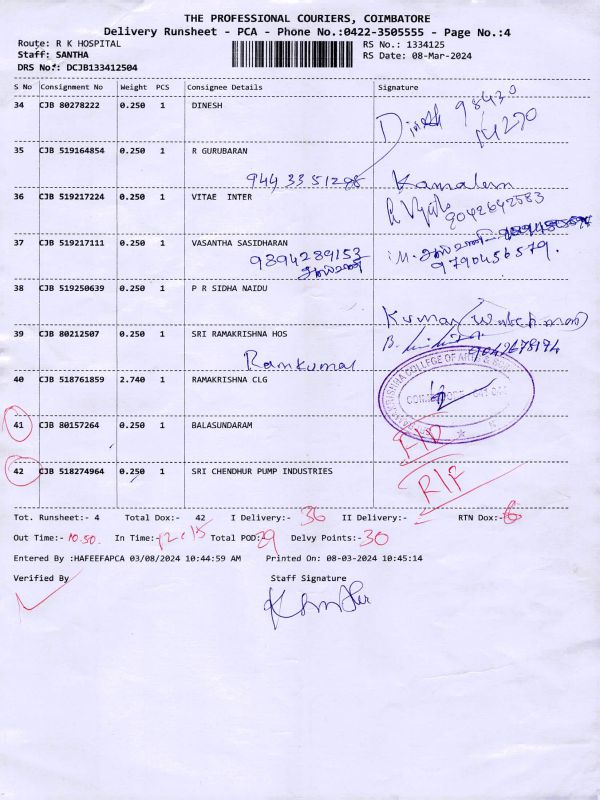 THE PROFESSIONAL COURIERS, COIMBATORE
Delivery Runsheet - PCA - Phone No.:0422-3505555 - Page No.:4
Route: R K HOSPITAL
RS No.: 1334125
Staff: SANTHA
RS Date: 08-Mar-2024
DRS No.: DCJB133412504
S No Consignment No Weight PCS Consignee Details Signature
34 CJB 80278222 0.250 1 DINESH
Dinesh 98430
14290
35 CJB 519164854 0.250 1 R GURUBARAN
9443351298 Kamalam
36 CJB 519217224 0.250 1 VITAE INTER
9042642583
37 CJB 519217111 0.250 1 VASANTHA SASIDHARAN
9894289153
9790456579.
38 CJB 519250639 0.250 1 P R SIDHA NAIDU
Kumar (Watch man)
39 CJB 80212507 0.250 1 SRI RAMAKRISHNA HOS
Ramkumar
40 CJB 518761859 2.740 1 RAMAKRISHNA CLG
RAMAKRISHNA COLLEGE OF ARTS &
41 CJB 80157264 0.250 1 BALASUNDARAM
42 CJB 518274964 0.250 1 SRI CHENDHUR PUMP INDUSTRIES
R/F
Tot. Runsheet:- 4 Total Dox:- 42 I Delivery:- 36 II Delivery:- RTN Dox:- 6
Out Time:- 10.50. In Time:- 12.15 Total POD: 29 Delvy Points:- 30
Entered By :HAFEEFAPCA 03/08/2024 10:44:59 AM Printed On: 08-03-2024 10:45:14
Verified By Staff Signature